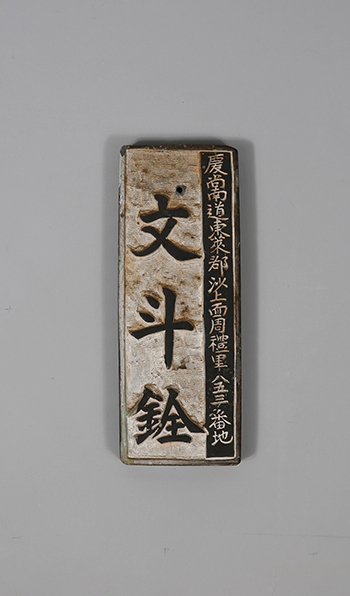 慶尚南道東萊郡沙上面周禮里八五三番地
文斗銓